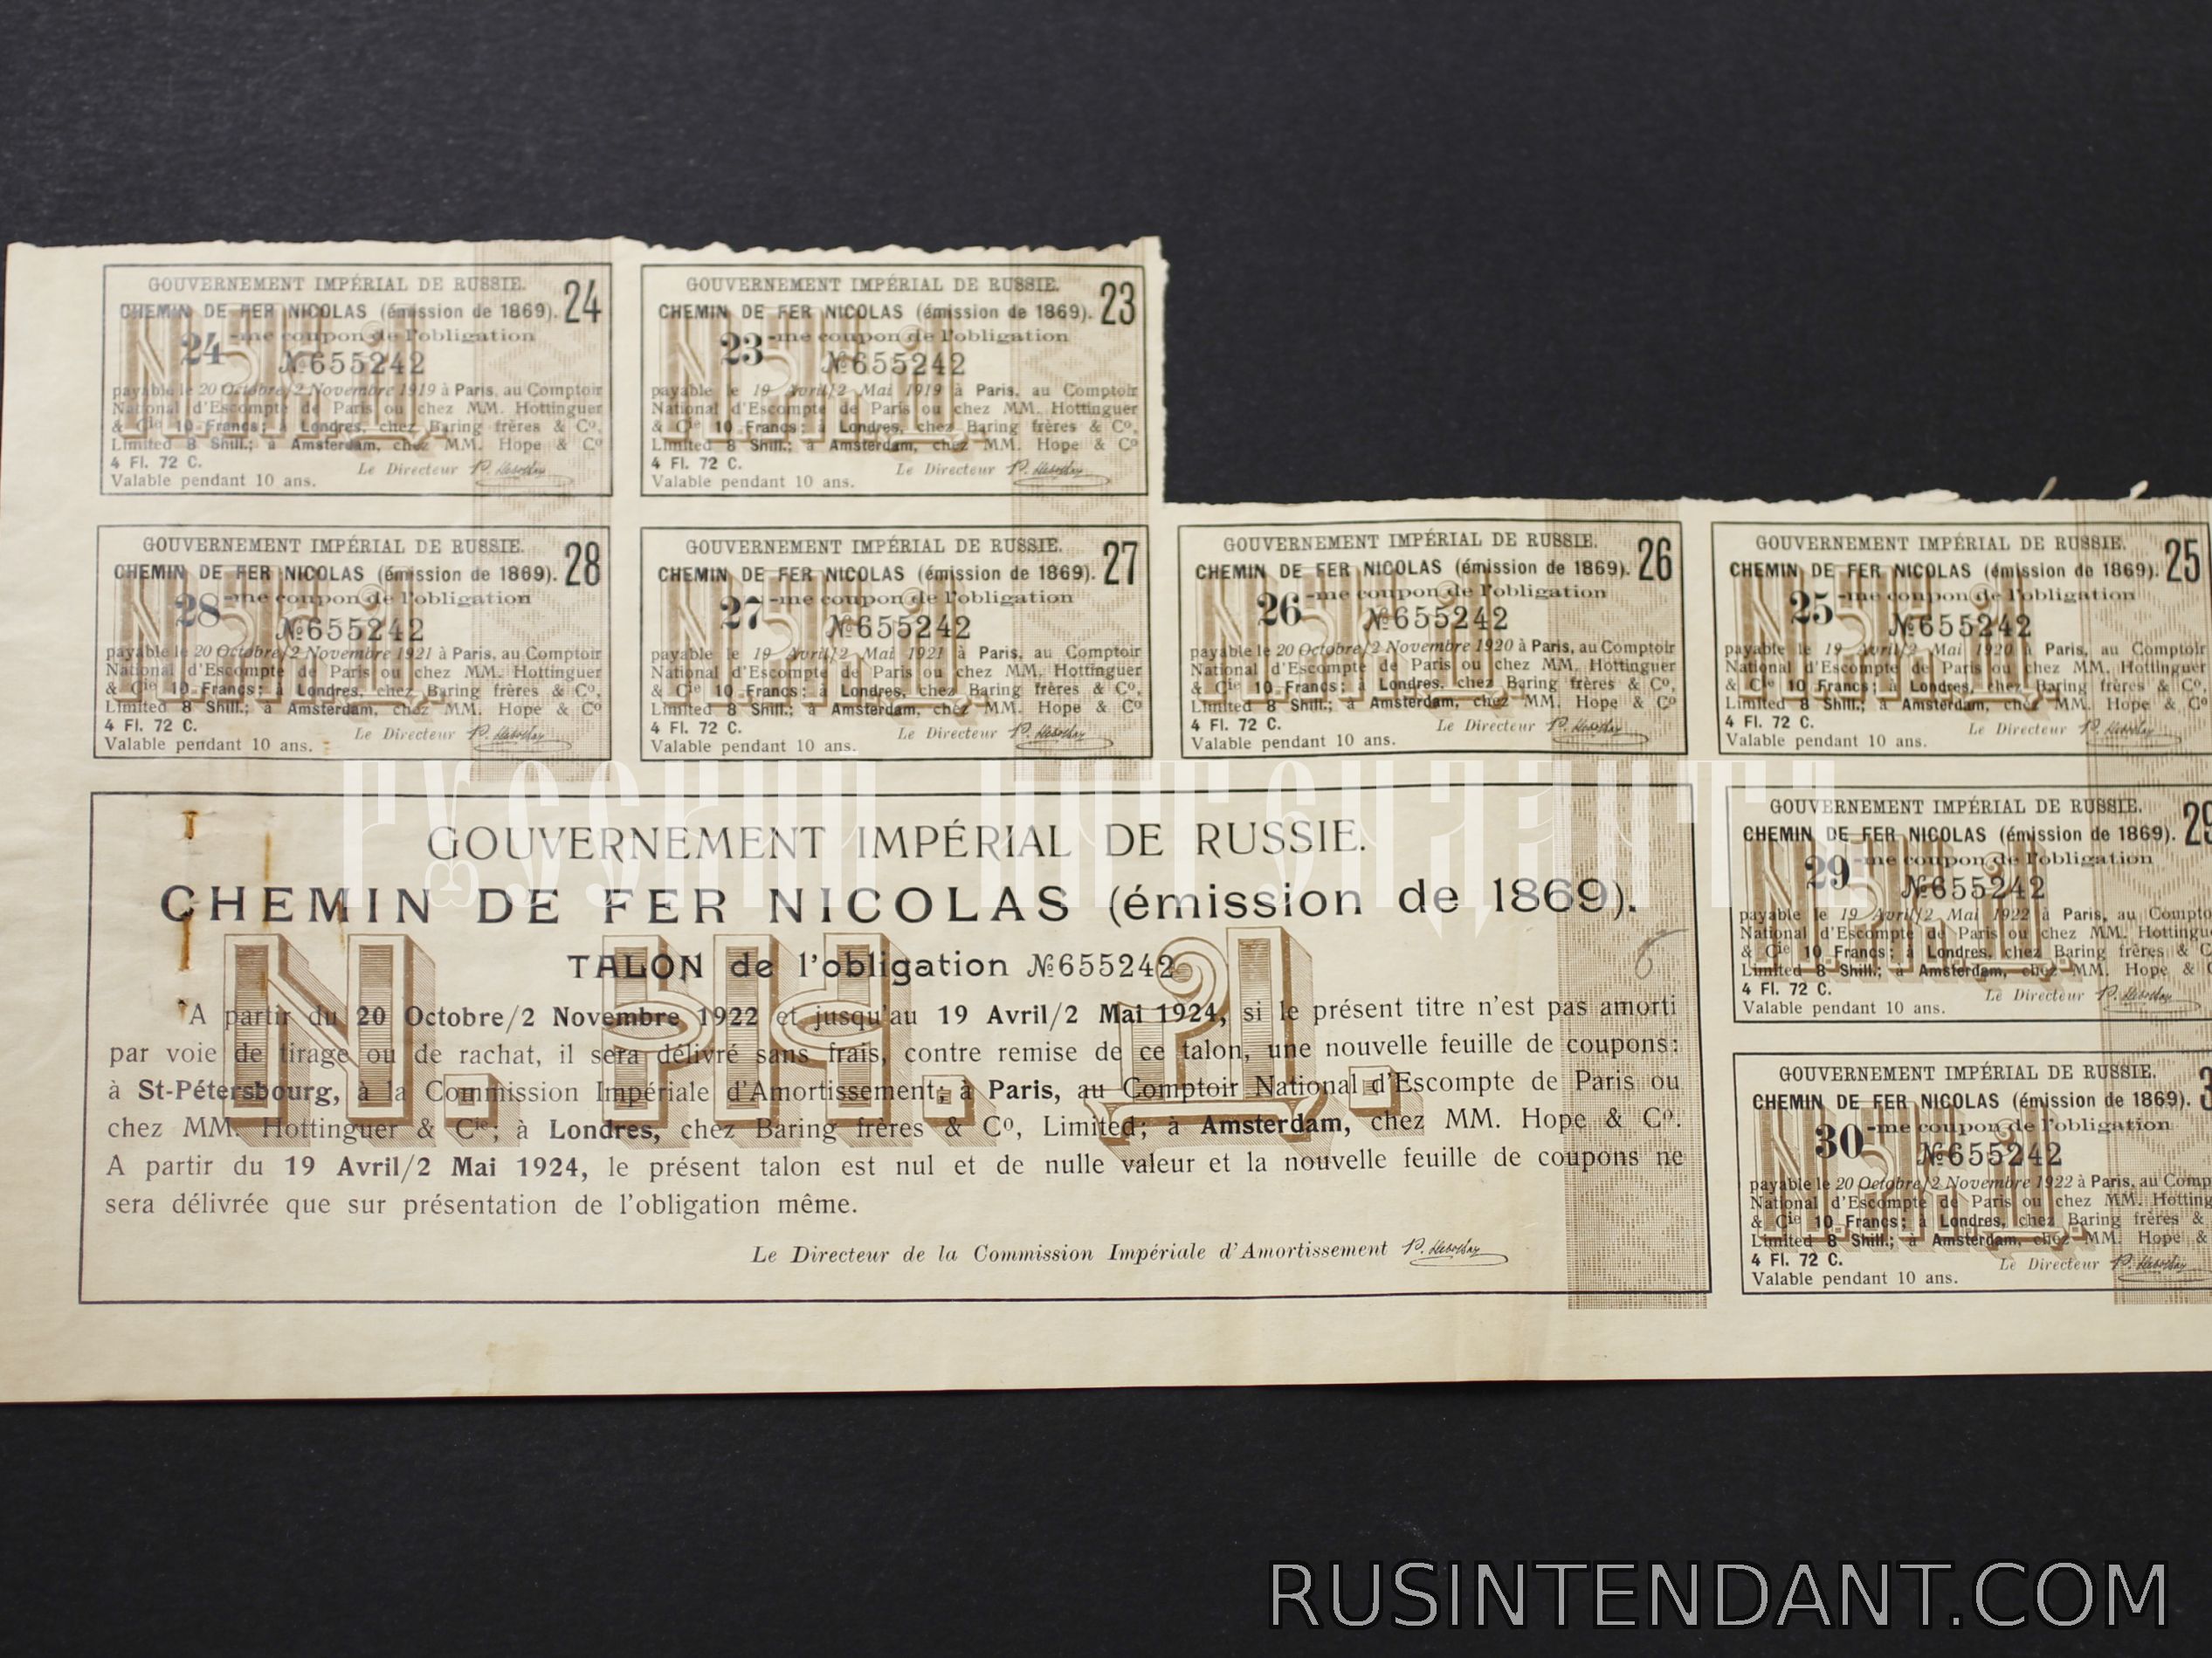 GOUVERNEMENT IMPÉRIAL DE RUSSIE. 24
CHEMIN DE FER NICOLAS (émission de 1869).
24-me coupon de l'obligation
№655242
payable le 20 Octobre/2 Novembre 1919 à Paris, au Comptoir
National d'Escompte de Paris ou chez MM. Hottinguer
& Cie 10 Francs; à Londres, chez Baring frères & Co,
Limited 8 Shill.; à Amsterdam, chez MM. Hope & Co
4 Fl. 72 C.
Le Directeur
Valable pendant 10 ans.
GOUVERNEMENT IMPÉRIAL DE RUSSIE. 23
CHEMIN DE FER NICOLAS (émission de 1869).
23-me coupon de l'obligation
№655242
payable le 19 Avril/2 Mai 1919 à Paris, au Comptoir
National d'Escompte de Paris ou chez MM. Hottinguer
& Cie 10 Francs; à Londres, chez Baring frères & Co,
Limited 8 Shill.; à Amsterdam, chez MM. Hope & Co
4 Fl. 72 C.
Le Directeur
Valable pendant 10 ans.
GOUVERNEMENT IMPÉRIAL DE RUSSIE. 28
CHEMIN DE FER NICOLAS (émission de 1869).
28-me coupon de l'obligation
№655242
payable le 20 Octobre/2 Novembre 1921 à Paris, au Comptoir
National d'Escompte de Paris ou chez MM. Hottinguer
& Cie 10 Francs; à Londres, chez Baring frères & Co,
Limited 8 Shill.; à Amsterdam, chez MM. Hope & Co
4 Fl. 72 C.
Le Directeur
Valable pendant 10 ans.
GOUVERNEMENT IMPÉRIAL DE RUSSIE. 27
CHEMIN DE FER NICOLAS (émission de 1869).
27-me coupon de l'obligation
№655242
payable le 19 Avril/2 Mai 1921 à Paris, au Comptoir
National d'Escompte de Paris ou chez MM. Hottinguer
& Cie 10 Francs; à Londres, chez Baring frères & Co,
Limited 8 Shill.; à Amsterdam, chez MM. Hope & Co
4 Fl. 72 C.
Le Directeur
Valable pendant 10 ans.
GOUVERNEMENT IMPÉRIAL DE RUSSIE. 26
CHEMIN DE FER NICOLAS (émission de 1869).
26-me coupon de l'obligation
№655242
payable le 20 Octobre/2 Novembre 1920 à Paris, au Comptoir
National d'Escompte de Paris ou chez MM. Hottinguer
& Cie 10 Francs; à Londres, chez Baring frères & Co,
Limited 8 Shill.; à Amsterdam, chez MM. Hope & Co
4 Fl. 72 C.
Le Directeur
Valable pendant 10 ans.
GOUVERNEMENT IMPÉRIAL DE RUSSIE. 25
CHEMIN DE FER NICOLAS (émission de 1869).
25-me coupon de l'obligation
№655242
payable le 19 Avril/2 Mai 1920 à Paris, au Comptoir
National d'Escompte de Paris ou chez MM. Hottinguer
& Cie 10 Francs; à Londres, chez Baring frères & Co,
Limited 8 Shill.; à Amsterdam, chez MM. Hope & Co
4 Fl. 72 C.
Le Directeur
Valable pendant 10 ans.
GOUVERNEMENT IMPÉRIAL DE RUSSIE.
CHEMIN DE FER NICOLAS (émission de 1869).
TALON de l'obligation №655242
A partir du 20 Octobre/2 Novembre 1922 et jusqu'au 19 Avril/2 Mai 1924, si le présent titre n'est pas amorti
par voie de tirage ou de rachat, il sera délivré sans frais, contre remise de ce talon, une nouvelle feuille de coupons:
à St-Pétersbourg, à la Commission Impériale d'Amortissement; à Paris, au Comptoir National d'Escompte de Paris ou
chez MM. Hottinguer & Cie; à Londres, chez Baring frères & Co, Limited; à Amsterdam, chez MM. Hope & Co.
A partir du 19 Avril/2 Mai 1924, le présent talon est nul et de nulle valeur et la nouvelle feuille de coupons ne
sera délivrée que sur présentation de l'obligation même.
Le Directeur de la Commission Impériale d'Amortissement
GOUVERNEMENT IMPÉRIAL DE RUSSIE. 29
CHEMIN DE FER NICOLAS (émission de 1869).
29-me coupon de l'obligation
№655242
payable le 19 Avril/2 Mai 1922 à Paris, au Compto
National d'Escompte de Paris ou chez MM. Hottingu
& Cie 10 Francs; à Londres, chez Baring frères & C
Limited 8 Shill.; à Amsterdam, chez MM. Hope &
4 Fl. 72 C.
Le Directeur
Valable pendant 10 ans.
GOUVERNEMENT IMPÉRIAL DE RUSSIE. 3
CHEMIN DE FER NICOLAS (émission de 1869).
30-me coupon de l'obligation
№655242
payable le 20 Octobre/2 Novembre 1922 à Paris, au Comp
National d'Escompte de Paris ou chez MM. Hotting
& Cie 10 Francs; à Londres, chez Baring frères &
Limited 8 Shill.; à Amsterdam, chez MM. Hope &
4 Fl. 72 C.
Le Directeur
Valable pendant 10 ans.
RUSINTENDANT.COM